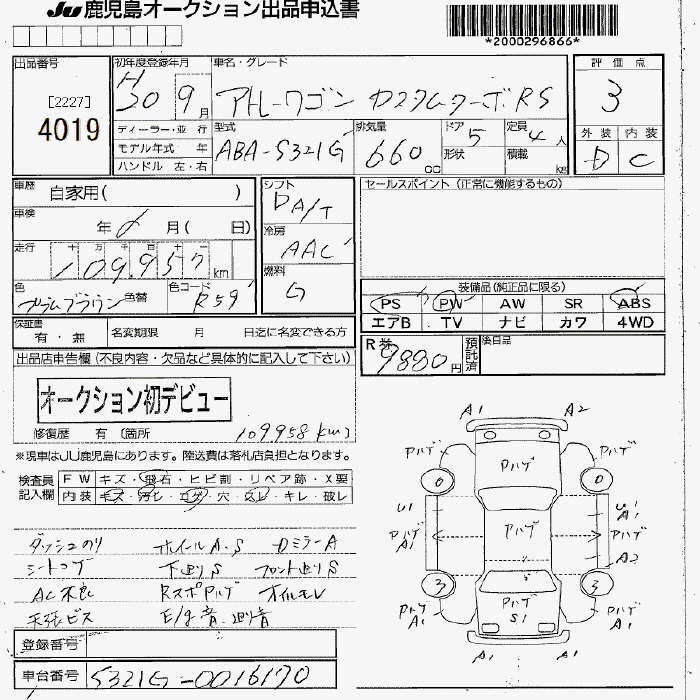 JU 鹿児島オークション出品申込書
*2000296866*
出品番号
[2227]
4019
初年度登録年月
H30 9月
車名・グレード
アトレーワゴン カスタムターボRS
評価点
3
外装 内装
D C
ディーラー・並行
モデル年式 年
ハンドル 左・右
型式
ABA-S321G
排気量
660 cc
ドア 5
形状
定員 4人
積載 kg
車歴
自家用( )
車検
年 月( 日)
走行 十 万 千 百 十
109,957km
色
プラムブラウン
色替
色コード
R59
シフト
DA/T
冷房
AAC
燃料
G
セールスポイント (正常に機能するもの)
装備品(純正品に限る)
PS PW AW SR ABS
エアB TV ナビ カワ 4WD
保証書
有・無
名変期限 月 日迄に名変できる方
R券
9880円
預託済
後日品
出品店申告欄(不良内容・欠品など具体的に記入して下さい)
オークション初デビュー
修復歴 有 (箇所
109958km)
※現車はJU鹿児島にあります。陸送費は落札店負担となります。
検査員
記入欄
FW キズ・飛石・ヒビ割・リペア跡・X要
内装 キズ・汚れ・コゲ・穴・スレ・キレ・破レ
ダッシュのり ホイールA.S DミラーA
シートコゲ 下廻りS フロント廻りS
AC不良 RスポPハゲ オイルモレ
天張ビス E/g音 廻り音
登録番号
車台番号 S321G-0016170
A1 A2
Pハゲ
0 0
U1 U1 A1
Pハゲ A1 Pハゲ Pハゲ
A2
3 3
Pハゲ A1 Pハゲ S1 Pハゲ A1
A1 A1